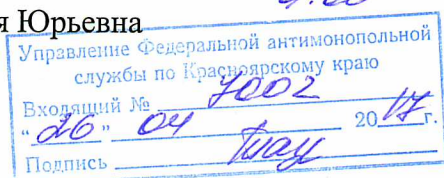 я Юрьевна
Управление Федеральной антимонопольной
службы по Красноярскому краю
Входящий № 7002
"26" 04 2017 г.
Подпись